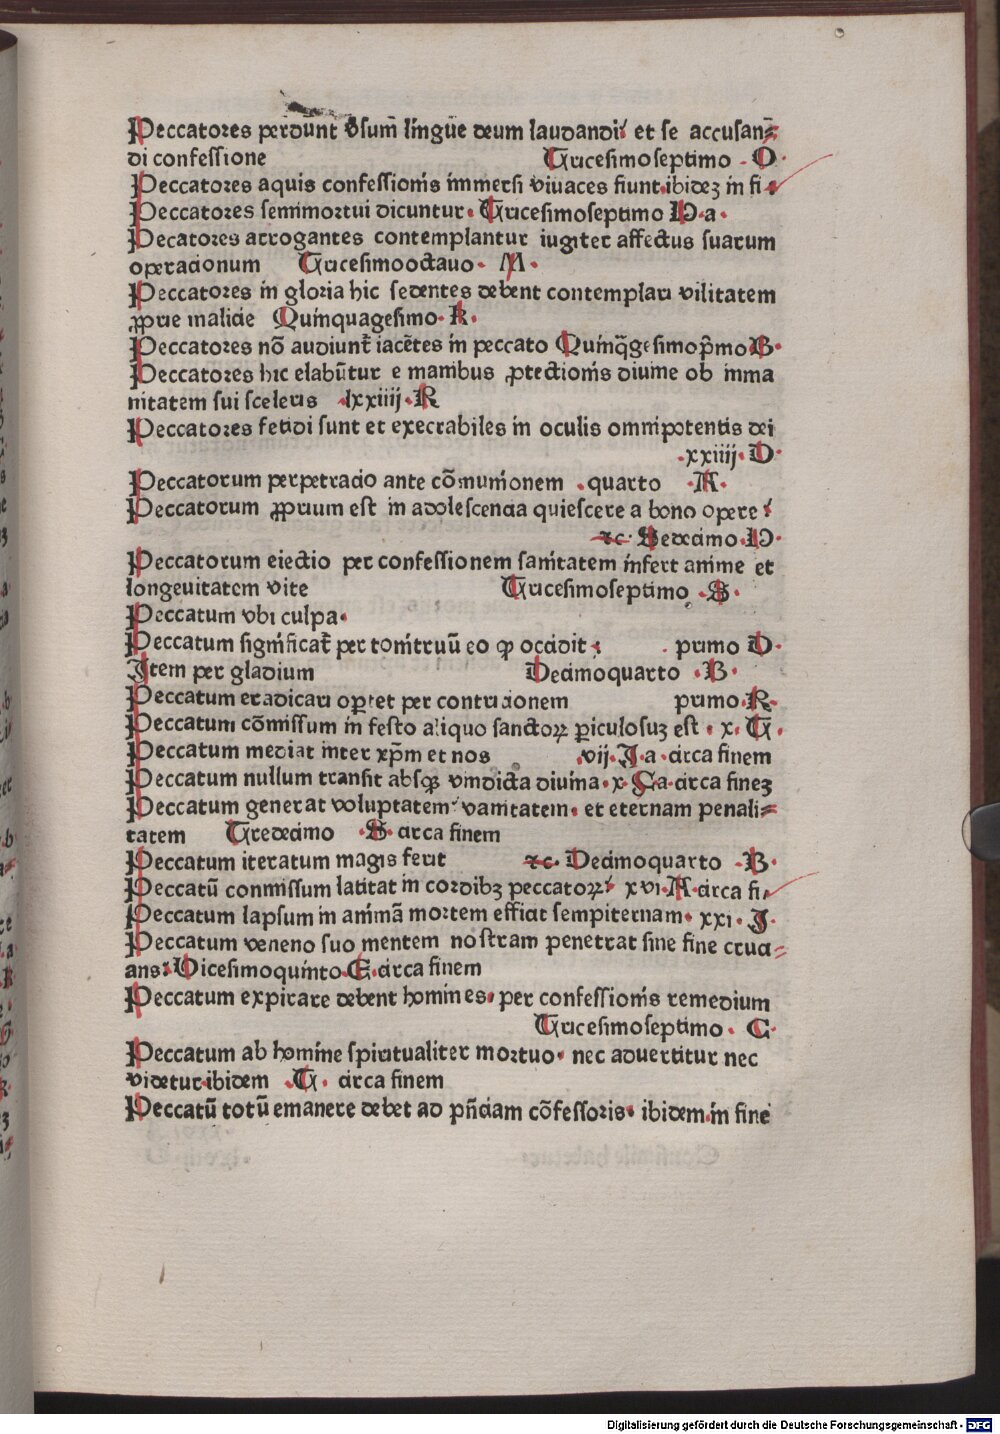 Peccatores perdunt vsum̄ lingue deum laudandi⸝ et se accusan⸗
di confessione Tricesimoseptimo · O ·
Peccatores aquis confessionis immersi viuaces fiunt· ibideꝫ in fi ·
Peccatores semimortui dicuntur· Tricesimoseptimo P·a·
Peccatores arrogantes contemplantur iugiter affectus suarum
operacionum Tricesimooctauo· M ·
Peccatores in gloria hic sedentes debent contemplari vilitatem
ꝓprie malicie Quinquagesimo· R ·
Peccatores nō audiunt̄ iacētes in peccato Quinq̄gesimop̄mo B·
Peccatores hic elabūtur e manibus ꝓtectionis diuine ob imma
nitatem sui sceleris ·lxxiiij· R
Peccatores fetidi sunt et execrabiles in oculis omnipotentis dei
·xxiiij· D·
Peccatorum perpetracio ante cōmunionem ·quarto ·A·
Peccatorum ꝓprium est in adolescencia quiescere a bono opere⸝
⁊c· Sedecimo· P·
Peccatorum eiectio per confessionem sanitatem infert anime et
longeuitatem vite Tricesimoseptimo · S ·
Peccatum vbi culpa·
Peccatum significat̄ per tonitruū eo ꝙ occidit · · primo D·
Item per gladium Decimoquarto · B ·
Peccatum eradicari oportet per contricionem primo· R·
Peccatum cōmissum in festo aliquo sanctoꝝ ꝑiculosuꝫ est · x· T·
Peccatum mediat inter xp̄m et nos ·vij· I·a ·circa finem
Peccatum nullum transit absqꝫ vindicta diuina· x· S a· circa fineꝫ
Peccatum generat voluptatem⸝ vanitatem· et eternam penali⸗
tatem Tredecimo ·S· circa finem
Peccatum iteratum magis ferit ⁊c· Decimoquarto · B·
Peccatū conmissum latitat in cordibꝫ peccatoꝝ⸝ xvi· A· circa fi·
Peccatum lapsum in animā mortem efficit sempiternam· xxi· I·
Peccatum veneno suo mentem nostram penetrat sine fine cruci⸗
ans· Vicesimoquinto· E· circa finem
Peccatum expirare debent homines· per confessionis remedium
Tricesimoseptimo · C·
Peccatum ab homine spiritualiter mortuo· nec aduertitur nec
videtur· ibidem ·T · circa finem
Peccatū totū emanere debet ad pn̄ciam cōfessoris· ibidem· in fine
Digitalisierung gefördert durch die Deutsche Forschungsgemeinschaft - DFG